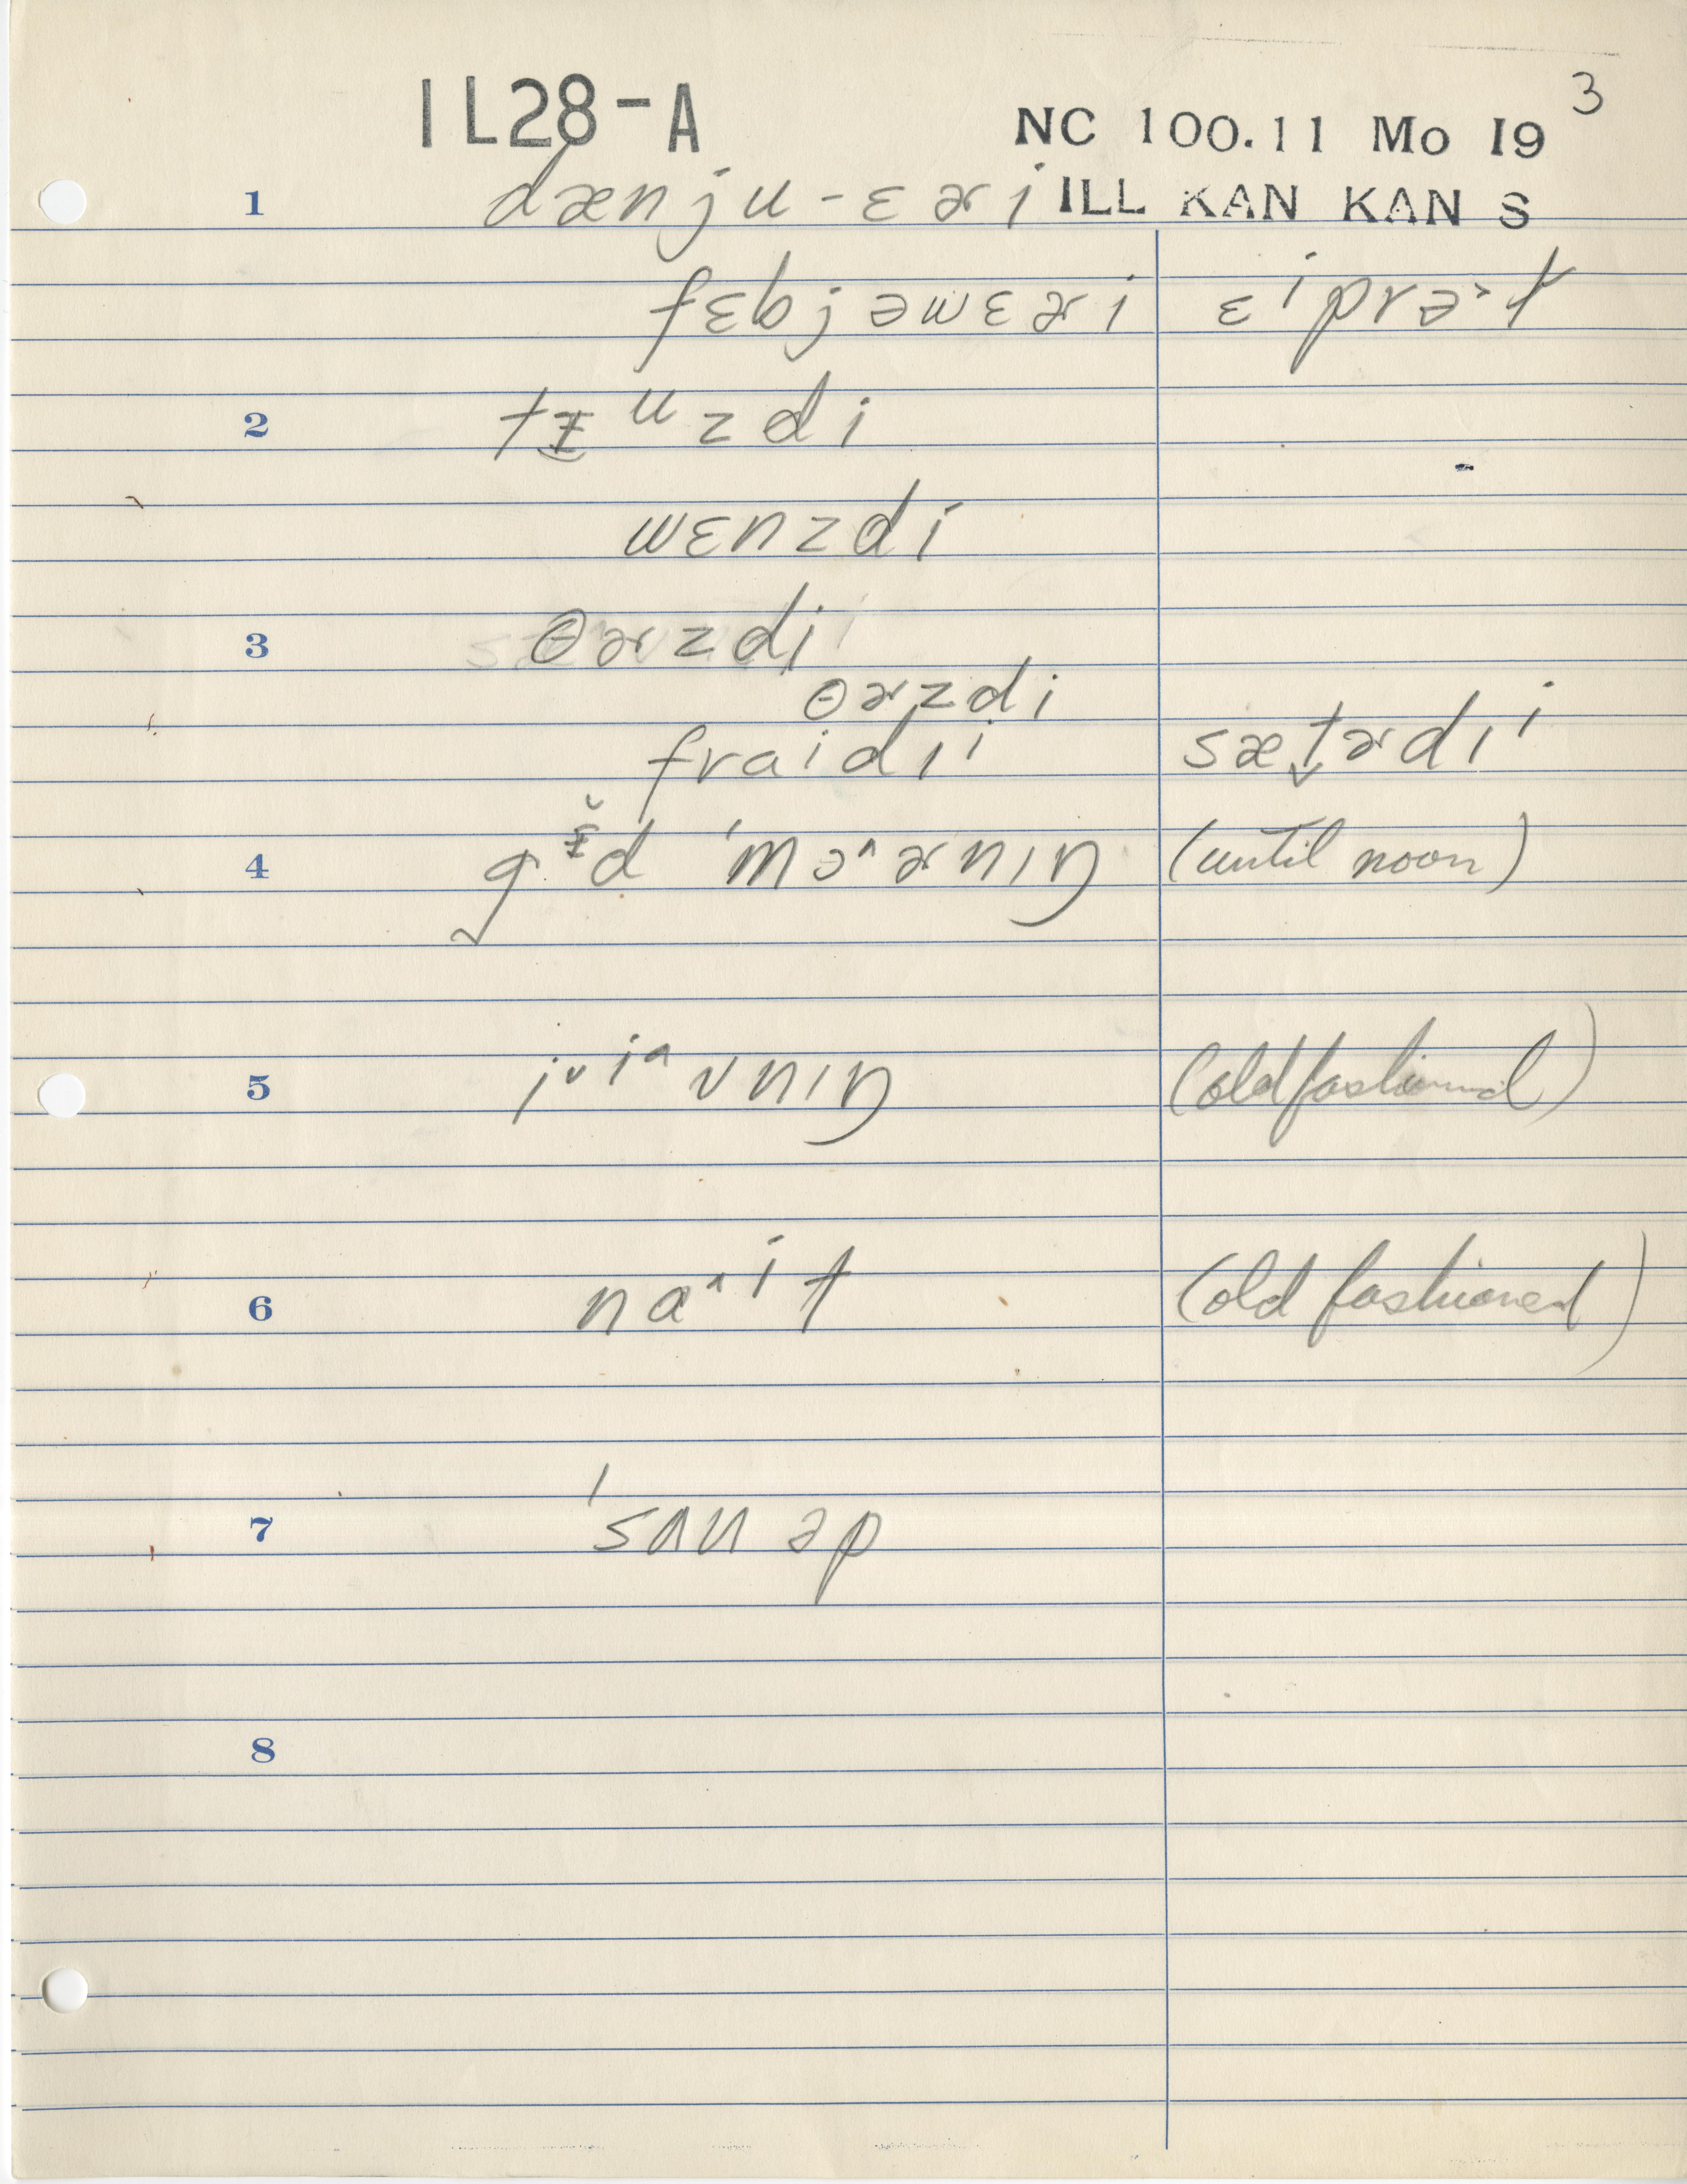 IL28-A
NC 100.11 Mo I9 3
1 dænju-ɛɚi ILL KAN KAN S
fɛbjəwɛɚi ɛⁱprə˃ɫ
2 tᵻᵘzdi
wɛnzdi
3 θɚzdi
θɚzdi
fraidɪⁱ sæt̬ɚdɪⁱ
4 gᵻ̆d ˈmɔ˄ɚnɪŋ (until noon)
5 i˅ⁱ˄vnɪŋ (oldfashioned)
6 na˄ⁱt (old fashioned)
7 ˈsʌnəp
8